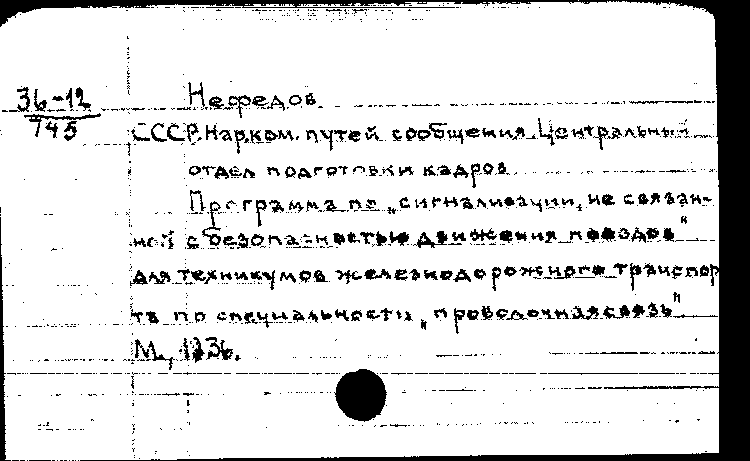 36-12
745
Нефедов.
СССР. Нар.ком. путей сообщения. Центральный
отдел подготовки кадров
Программа по „сигнализации, не связан-
ной с безопасностью движения поездов"
для техникумов железнодорожного транспор
та по специальности „проволочная связь".
М., 1936.